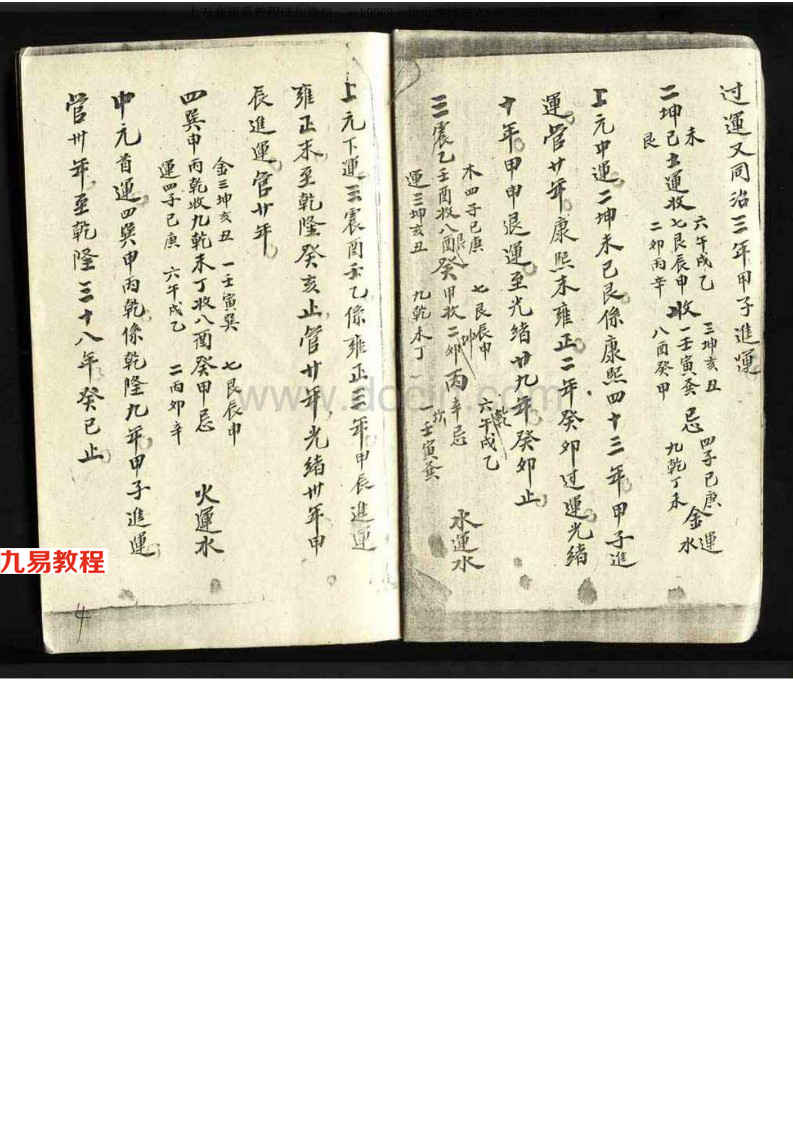 过運又同治三年甲子進運
未
二坤己土運收
艮
六午戌乙
七艮辰申
二卯丙辛
收
三坤亥丑
一壬寅巽
八酉癸甲
忌
四子己庚
九乾丁未
金運
水
上元中運二坤未己艮係康熙四十三年甲子進
運管廿年康熙末雍正二年癸卯过運光緒
十年甲申退運至光緒廿九年癸卯止
木四子己庚 七艮辰申 六午戌乙
三震乙壬酉收八酉癸甲收二卯丙辛忌 水運水
運三坤亥丑 九乾未丁 一壬寅巽
上元下運三震酉壬乙係雍正三年甲辰進運
雍正末至乾隆癸亥止管廿年光緒卅年甲
辰進運管廿年
金三坤亥丑 一壬寅巽 七艮辰申
四巽申丙乾收九乾未丁收八酉癸甲忌 火運水
運四子己庚 六午戌乙 二丙卯辛
中元首運四巽甲丙乾係乾隆九年甲子進運
管卅年至乾隆三十八年癸巳止
4
www.docin.com
九易教程